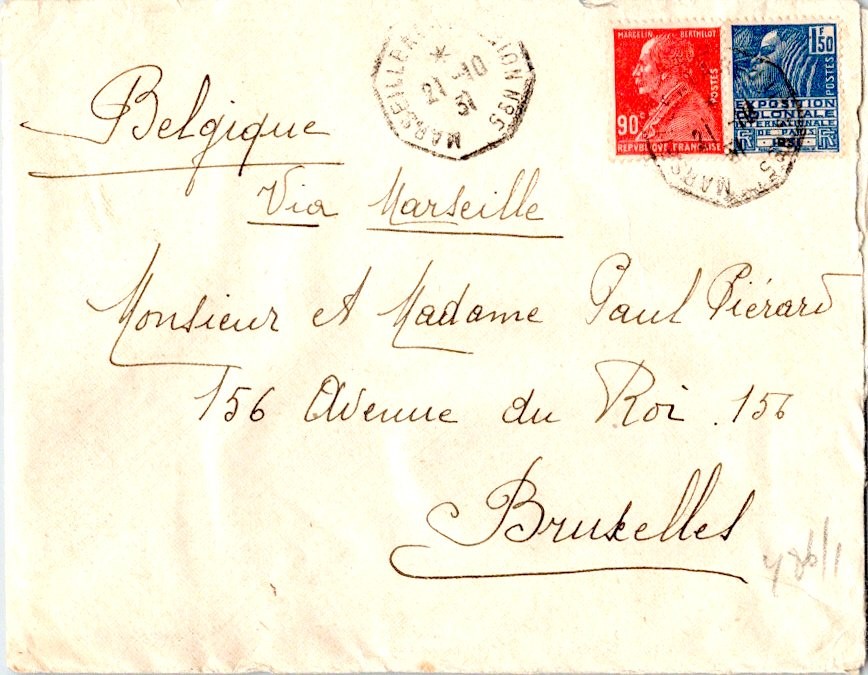 Belgique
Via Marseille
Monsieur et Madame Paul Piérard
156 Avenue du Roi . 156
Bruxelles
MARSEILLE N° 5
*
21 -10
31
MARCELIN BERTHELOT
90c
POSTES
REPVBLIQVE FRANÇAISE
1F50
POSTES
EXPOSITION
COLONIALE
INTERNATIONALE
DE PARIS
1931
21
MARS